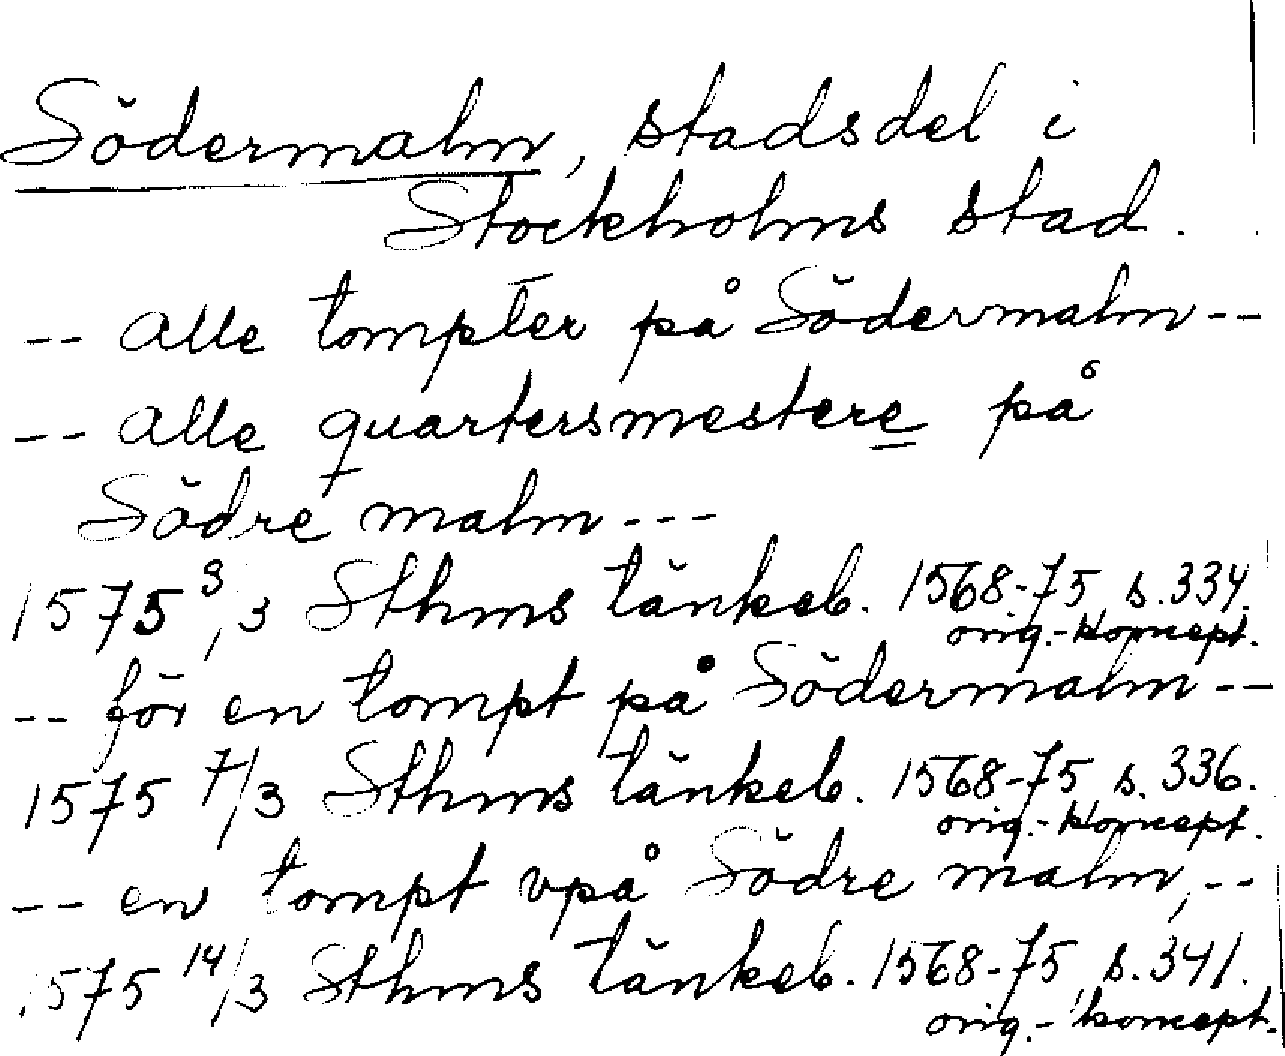 Södermalm, stadsdel i
Stockholms stad.
-- Alle tompter på Södermalm --
-- Alle quartersmestere på
Södre malm ---
1575 3/3 Sthms tänkeb. 1568-75 s. 334.
orig.-koncept.
-- för en tompt på Södermalm --
1575 7/3 Sthms tänkeb. 1568-75 s. 336.
orig.-koncept.
-- en tompt vpå Södre malm, --
1575 14/3 Sthms tänkeb. 1568-75, s. 341.
orig.-koncept.